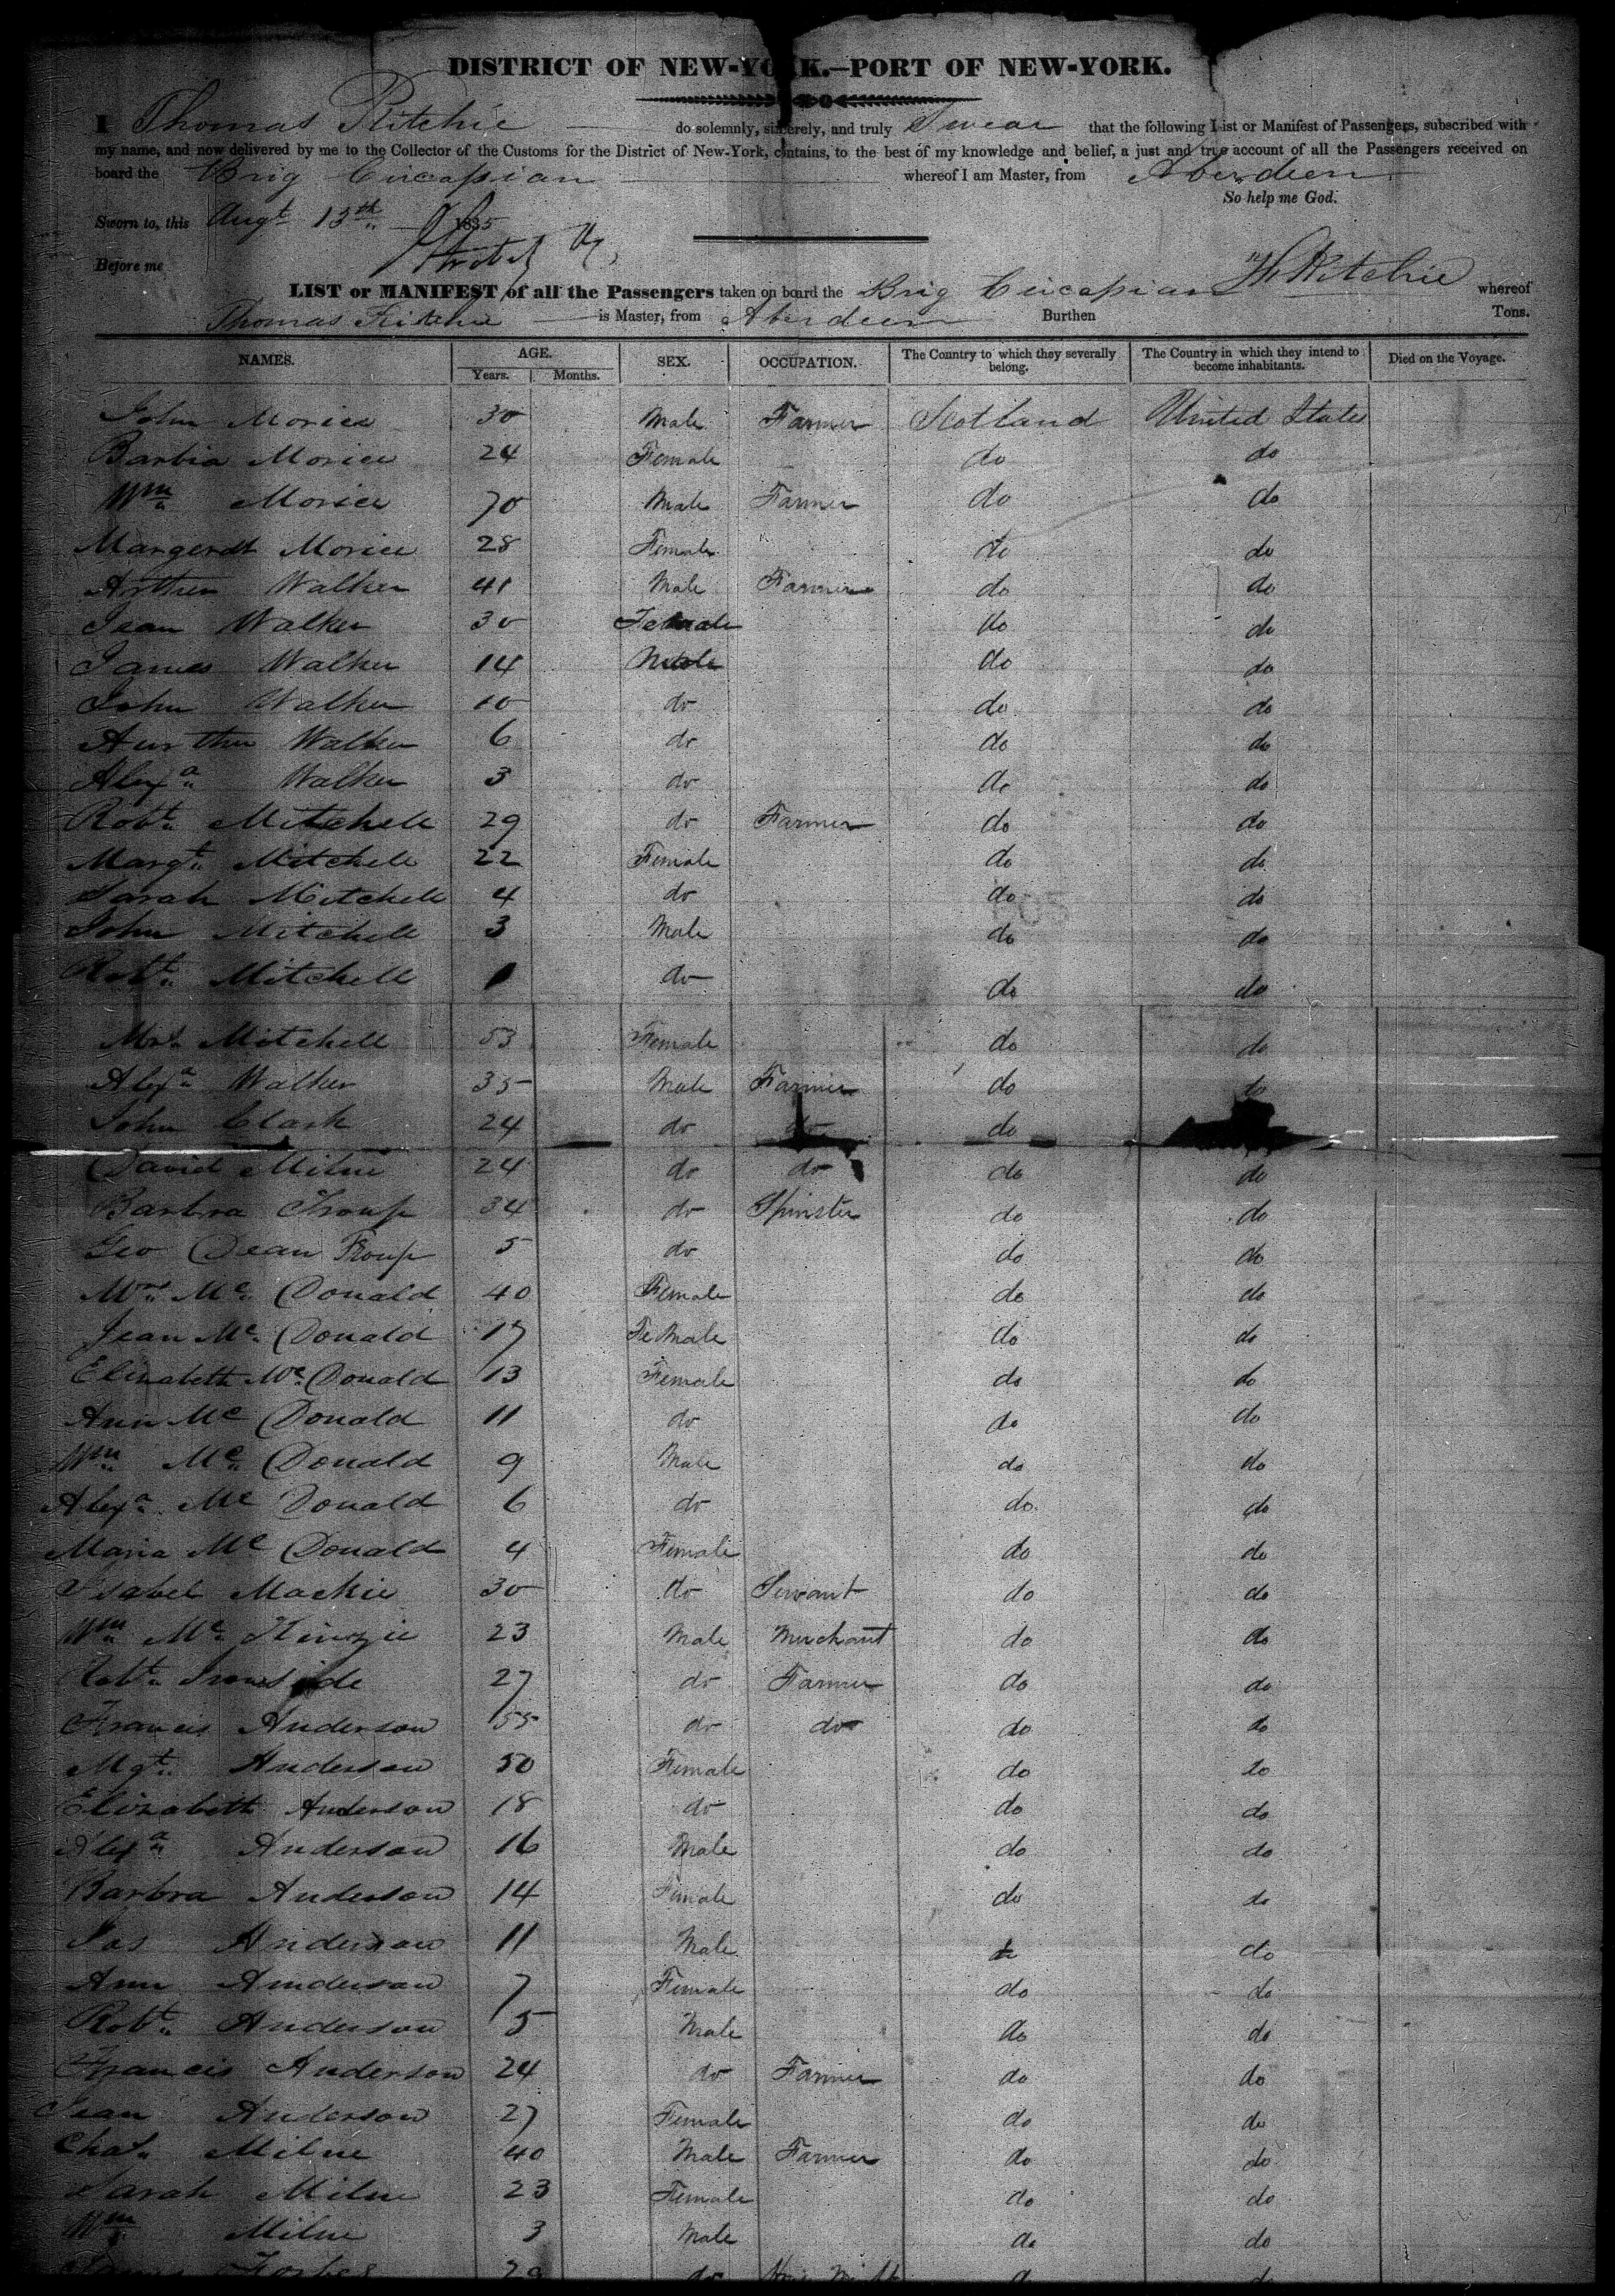 DISTRICT OF NEW-YORK.—PORT OF NEW-YORK.
I Thomas Ritchie do solemnly, sincerely, and truly Swear that the following List or Manifest of Passengers, subscribed with
my name, and now delivered by me to the Collector of the Customs for the District of New-York, contains, to the best of my knowledge and belief, a just and true account of all the Passengers received on
board the Brig Circassian whereof I am Master, from Aberdeen
So help me God.
Sworn to, this Augt 13th 1835
Before me
Ritchie
LIST or MANIFEST of all the Passengers taken on board the Brig Circassian whereof
Thomas Ritchie is Master, from Aberdeen Burthen Tons.
NAMES. AGE. SEX. OCCUPATION. The Country to which they severally belong. The Country in which they intend to become inhabitants. Died on the Voyage.
Years. Months.
John Morice 30 Male Farmer Scotland United States
Barbia Morice 24 Female do do
Wm Morice 70 Male Farmer do do
Margerdt Morice 28 Female do do
Arthur Walker 41 Male Farmer do do
Jean Walker 30 Female do do
James Walker 14 Male do do
John Walker 10 do do do
Aurthur Walker 6 do do do
Alexa Walker 3 do do do
Robt Mitchell 29 do Farmer do do
Margt Mitchell 22 Female do do
Sarah Mitchell 4 do do do
John Mitchell 3 Male do do
Robt Mitchell 1 do do do
Mrs Mitchell 53 Female do do
Alexa Walker 35 Male Farmer do do
John Clark 24 do do do
David Milne 24 do do do do
Barbra Troup 34 do Spinster do do
Geo Dean Troup 5 do do do
Mrs Mc Donald 40 Female do do
Jean Mc Donald 17 Female do do
Elizabeth Mc Donald 13 Female do do
Ann Mc Donald 11 do do do
Wm Mc Donald 9 Male do do
Alexa Mc Donald 6 do do do
Maria Mc Donald 4 Female do do
Isabel Mackie 30 do Servant do do
Wm Mc Kinzie 23 Male Merchant do do
Robt Ironside 27 do Farmer do do
Francis Anderson 55 do do do do
Mgt Anderson 50 Female do do
Elizabeth Anderson 18 do do do
Alexa Anderson 16 Male do do
Barbra Anderson 14 Female do do
Jas Anderson 11 Male do do
Ann Anderson 7 Female do do
Robt Anderson 5 Male do do
Francis Anderson 24 do Farmer do do
Jean Anderson 27 Female do do
Chas Milne 40 Male Farmer do do
Sarah Milne 23 Female do do
Wm Milne 3 Male do do
Forbes 29 do